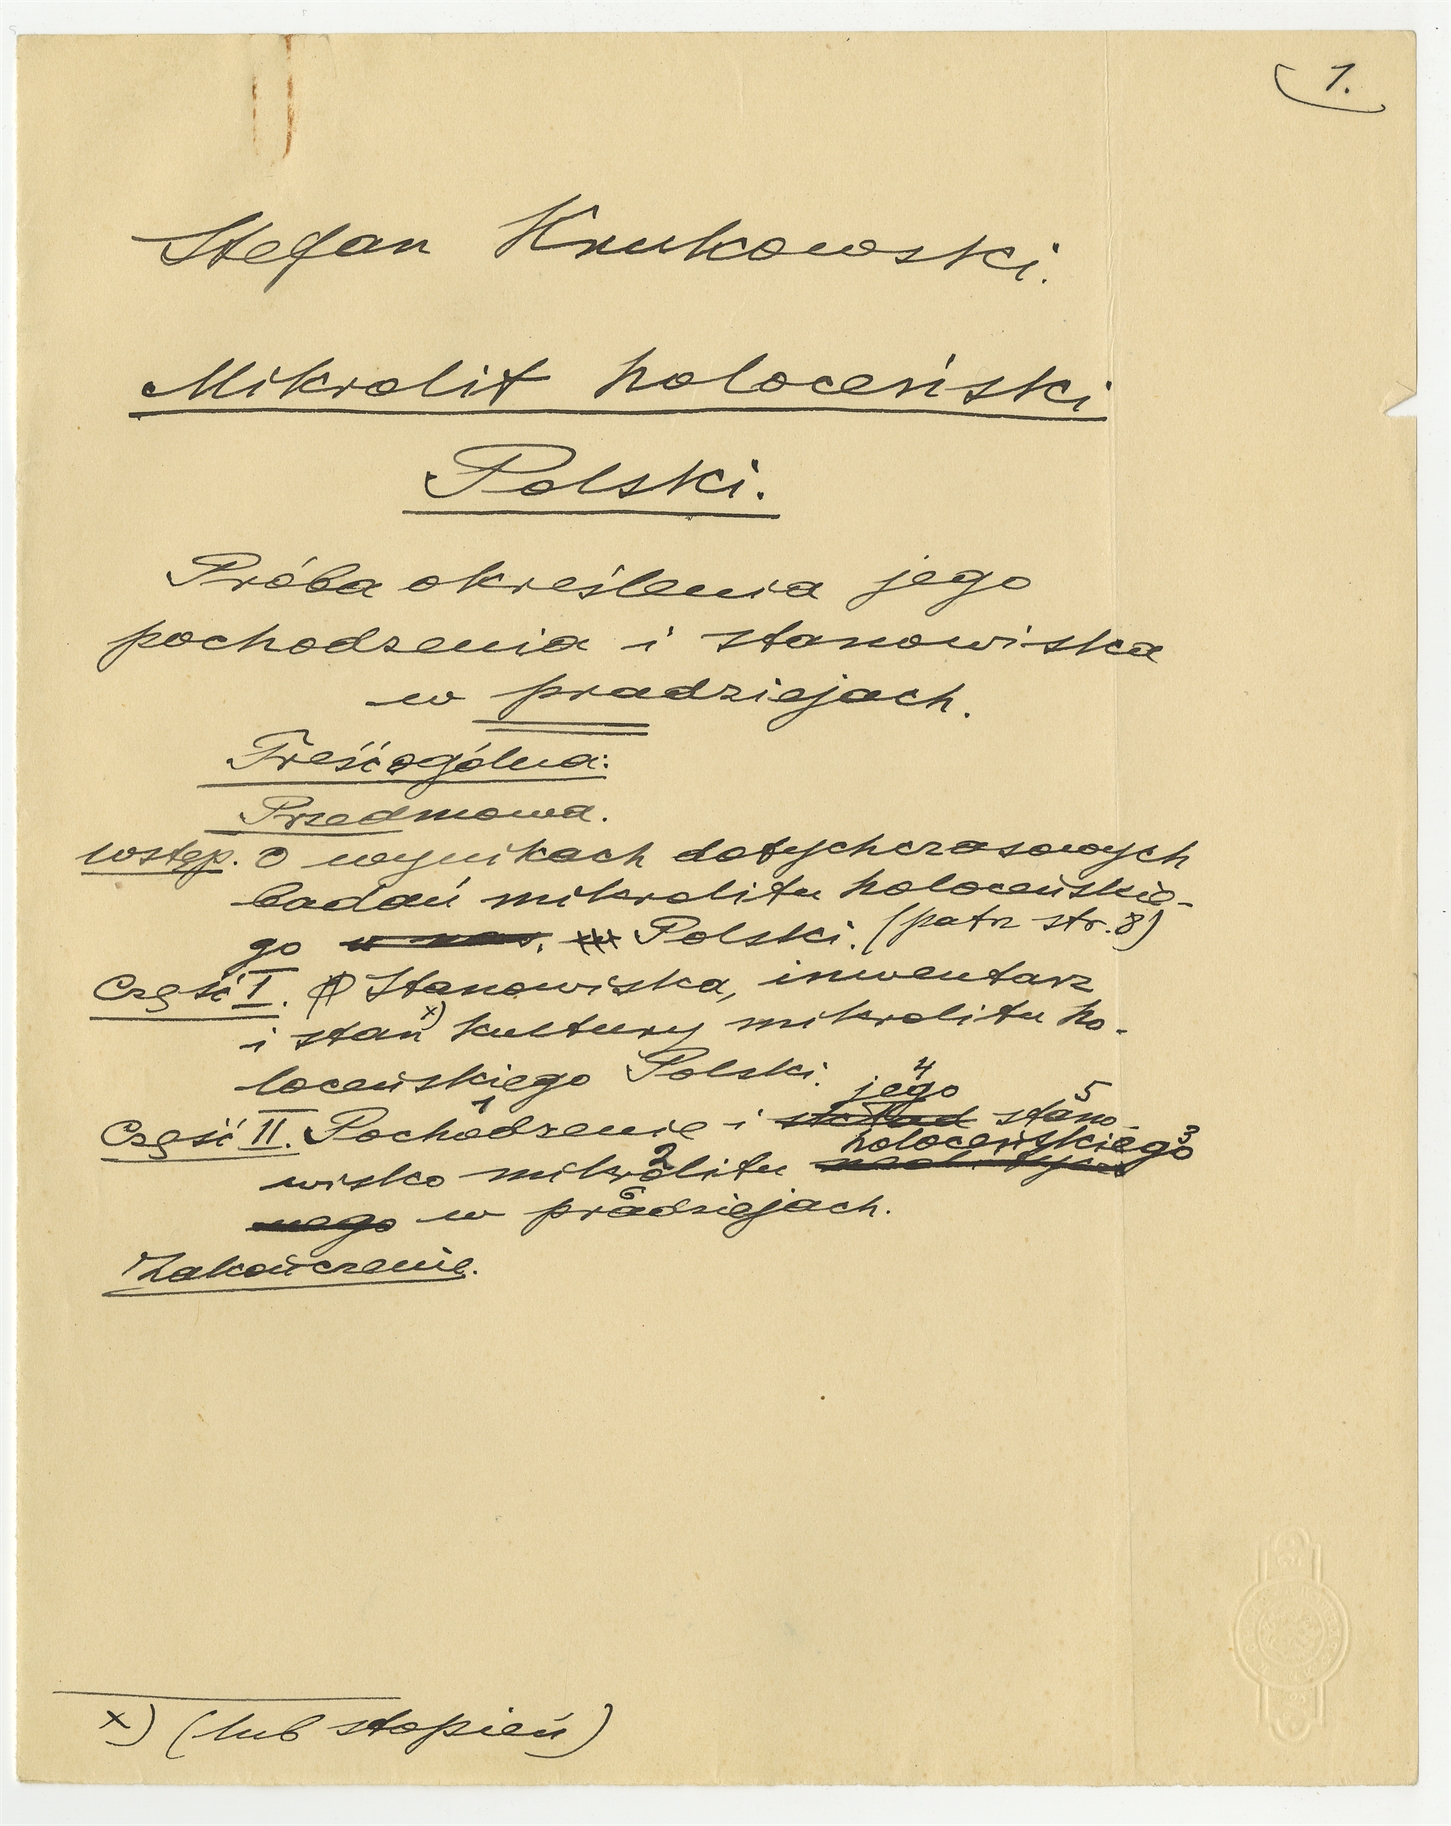 1.
Stefan Krukowski.
Mikrolit holoceński
Polski.
Próba określenia jego
pochodzenia i stanowiska
w pradziejach.
Treść ogólna:
Przedmowa.
Wstęp. O wynikach dotychczasowych
badań mikrolitu holoceńskie-
go Polski. (patrz str. 8)
Część I. Stanowiska, inwentarz
i stan x) kultury mikrolitu ho-
loceńskiego Polski.
4
jego 5
1
Część II. Pochodzenie i skład stano-
holoceńskiego 3
2
wisko mikrolitu
6
w pradziejach.
Zakończenie.
x) (lub stopień)